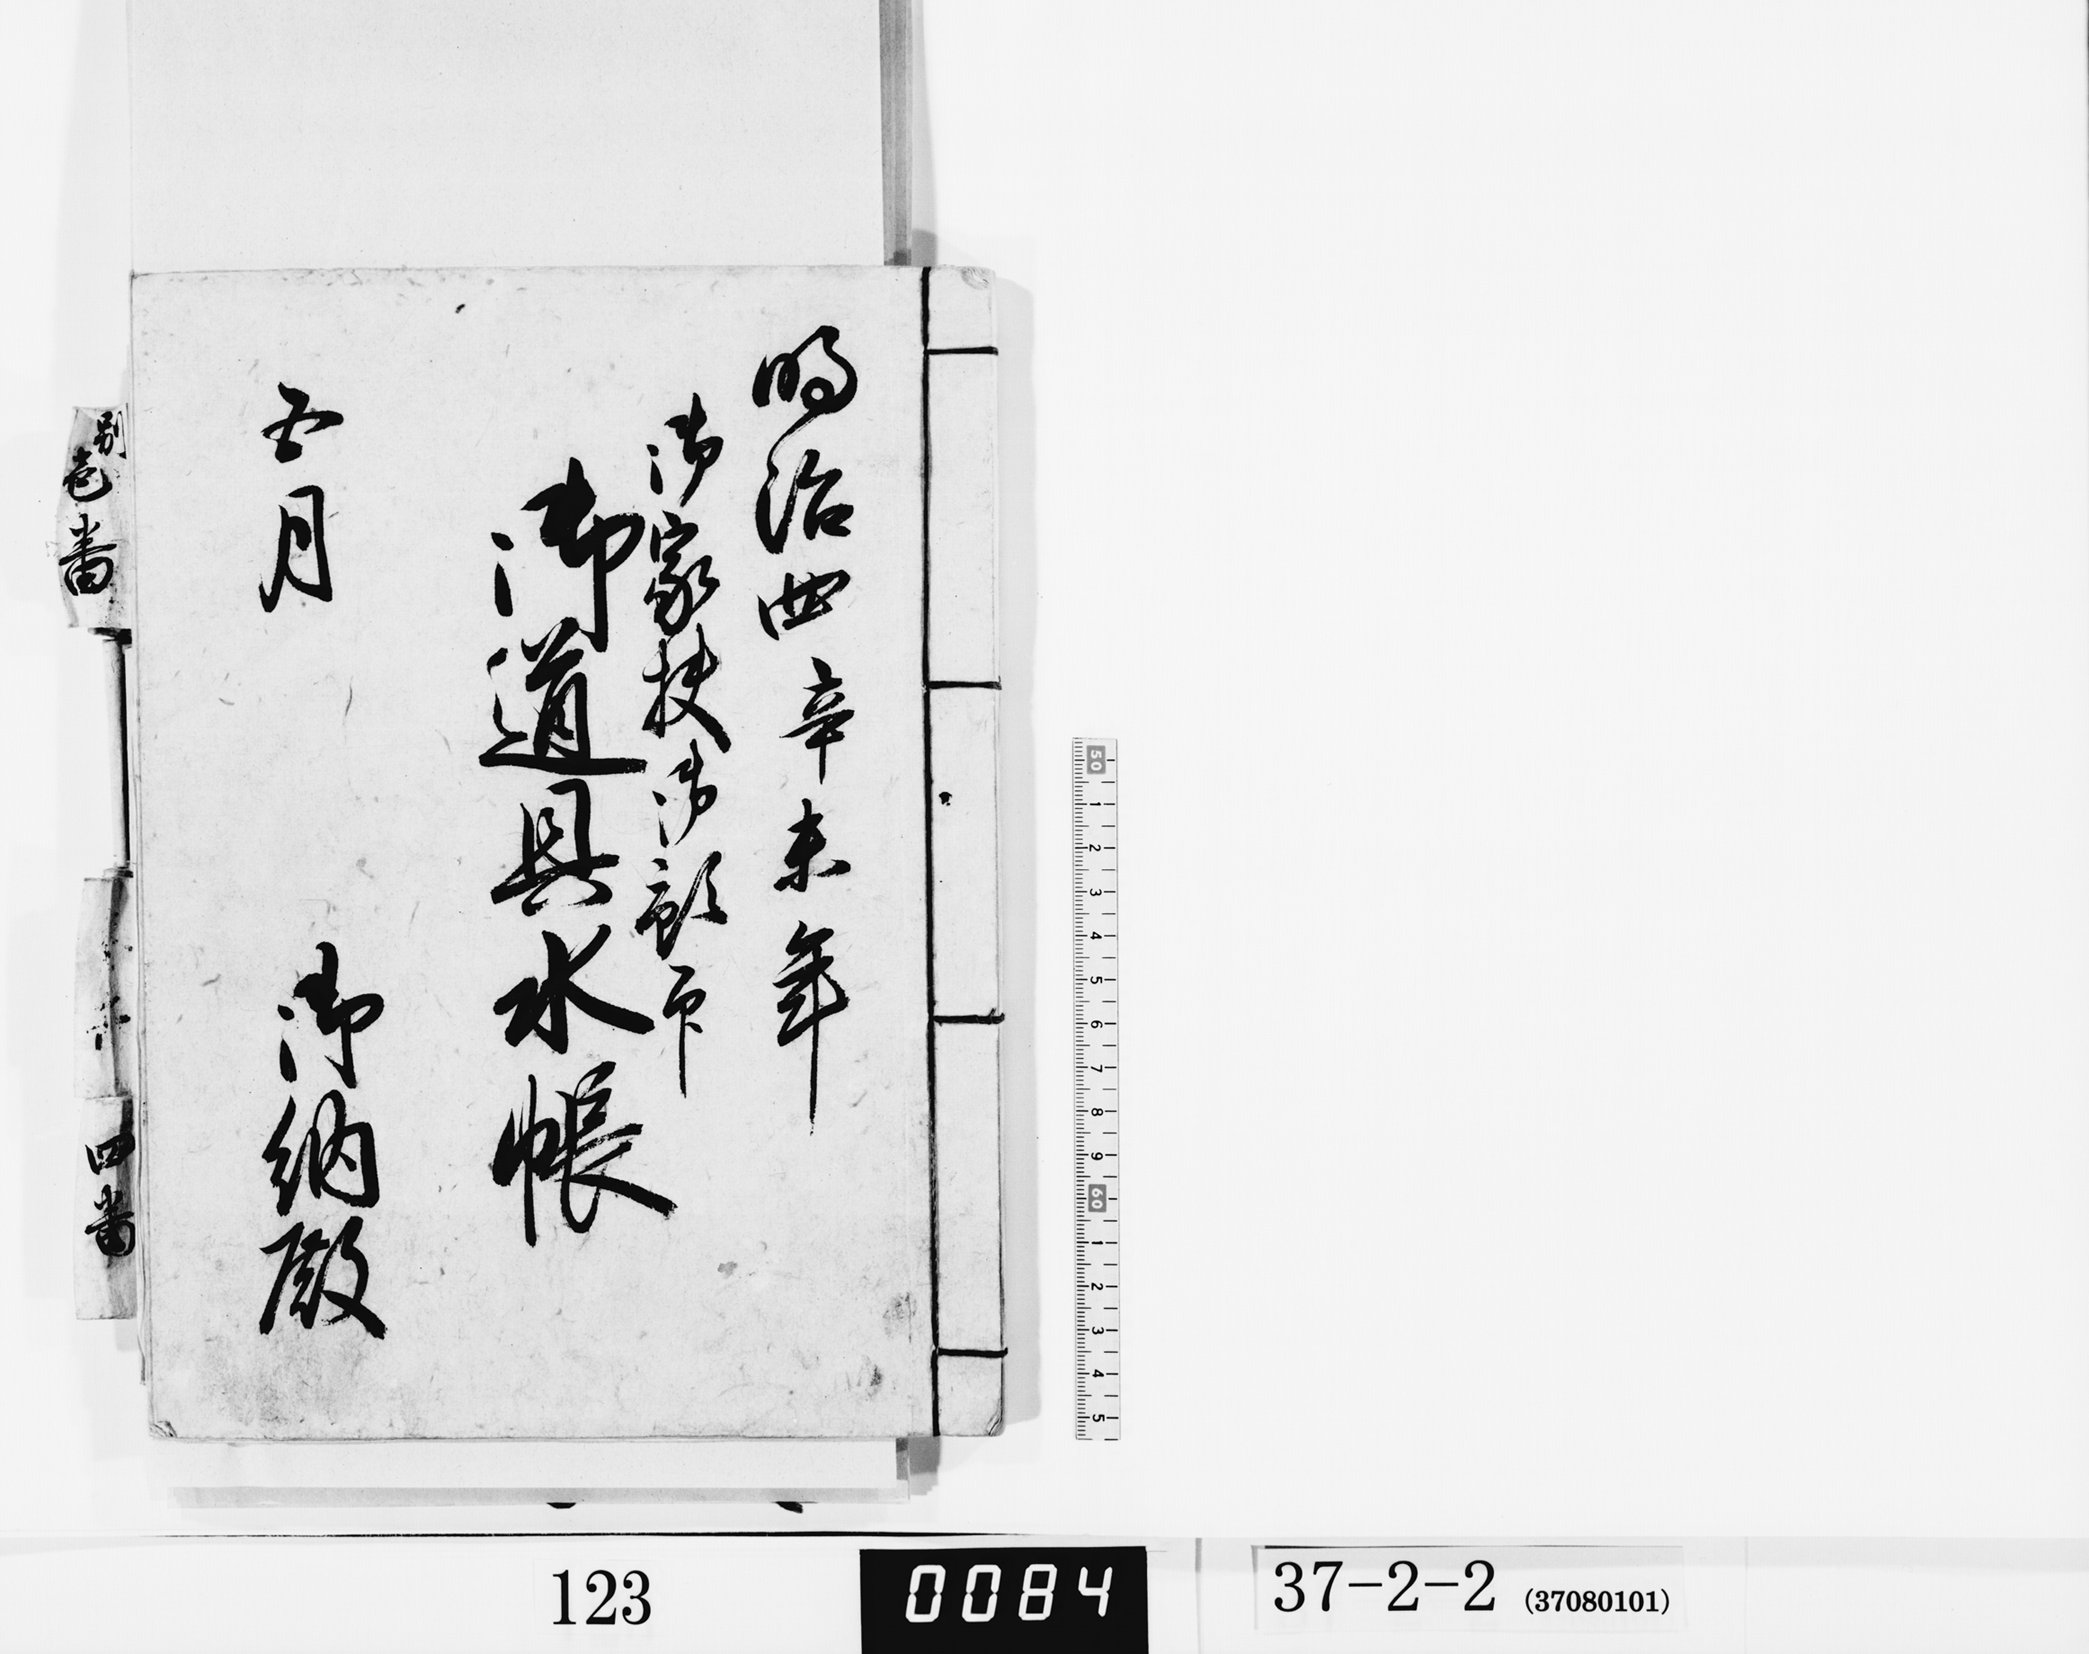 明治四辛未年
御家扶御預印
御道具水帳
五月
御納殿
別壱番
四番
50 1 2 3 4 5 6 7 8 9 60 1 2 3 4 5
123
0084
37-2-2 (37080101)